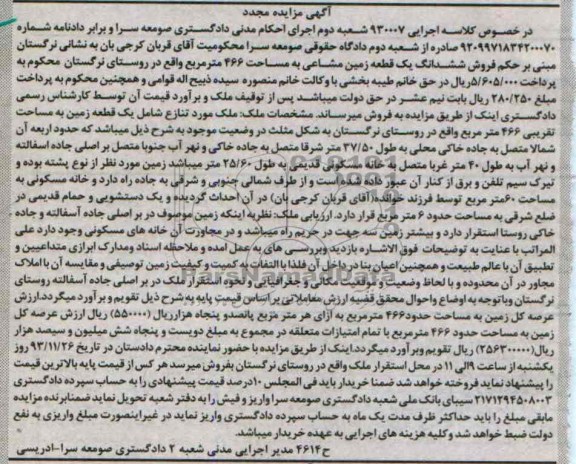 آگهی مزایده مجدد
در خصوص کلاسه اجرایی ۹۳۰۰۰۷ شعبه دوم اجرای احکام مدنی دادگستری صومعه سرا و برابر دادنامه شماره
۹۲۰۹۹۷۱۸۳۴۲۰۰۰۷۰ صادره از شعبه دوم دادگاه حقوقی صومعه سرا محکومیت آقای قربان کرجی بان به نشانی نرگستان
مبنی بر حکم فروش ششدانگ یک قطعه زمین مشاعی به مساحت ۴۶۶ مترمربع واقع در روستای نرگستان محکوم به
پرداخت ۵/۶۰۵/۰۰۰ ریال در حق خانم طیبه بخشی با وکالت خانم منصوره سیده ذبیح اله قوامی و همچنین محکوم به پرداخت
مبلغ ۲۸۰/۲۵۰ ریال بابت نیم عشر در حق دولت میباشد پس از توقیف ملک و برآورد قیمت آن توسط کارشناس رسمی
دادگستری اینک از طریق مزایده به فروش میرساند. مشخصات ملک: ملک مورد تنازع شامل یک قطعه زمین به مساحت
تقریبی ۴۶۶ متر مربع واقع در روستای نرگستان به شکل مثلث در وضعیت موجود به شرح ذیل میباشد که حدود اربعه آن
شمالا متصل به جاده خاکی محلی به طول ۳۷/۵۰ متر شرقا متصل به جاده خاکی و نهر آب جنوبا متصل بر اصلی جاده اسفالته
و نهر آب به طول ۴۰ متر غربا متصل به خانه مسکونی قدیمی به طول ۲۵/۶۰ متر میباشد زمین مورد نظر از نوع پشته بوده و
تیرک سیم تلفن و برق از کنار آن عبور داده شده است و از طرف شمالی جنوبی و شرقی به جاده راه دارد و خانه مسکونی به
مساحت ۶۰ متر مربع توسط فرزند خوانده (آقای قربان کرجی بان) در آن احداث گردیده و یک دستشویی و حمام قدیمی در
ضلع شرقی به مساحت حدود ۶ متر مربع قرار دارد. ارزیابی ملک: نظریه اینکه زمین موصوف در بر اصلی جاده آسفالته و جاده
خاکی روستا استقرار دارد و بیشتر زمین سه جهت در حریم راه میباشد و در مجاورت آن خانه های مسکونی وجود دارد علی
المراتب با عنایت به توضیحات فوق الاشاره بازدید وبررسی های به عمل امده و ملاحظه اسناد ومدارک ابرازی متداعیین و
تطبیق آن با عالم طبیعت و همچنین اعیان بنا در داخل آن فلذا باالتفات به کمیت و کیفیت زمین توصیفی و مقایسه آن با املاک
مجاور در آن محدوده و با لحاظ وضعیت و موقعیت مکانی و جغرافیایی و نحوه استقرار ملک در بر اصلی جاده آسفالته روستای
نرگستان وباتوجه به اوضاع واحوال محقق قضیه ارزش معاملاتی براساس قیمت پایه به شرح ذیل تقویم و برآورد میگردد.ارزش
عرصه کل زمین به مساحت حدود ۴۶۶ مترمربع به ازای هر متر مربع پانصدو پنجاه هزارریال (۵۵۰۰۰۰) ریال ارزش عرصه کل
زمین به مساحت حدود ۴۶۶ مترمربع با تمام امتیازات متعلقه در مجموع به مبلغ دویست و پنجاه شش میلیون و سیصد هزار
ریال (۲۵۶۳۰۰۰۰۰) ریال تقویم وبرآورد میگردد.اینک از طریق مزایده با حضور نماینده محترم دادستان در تاریخ ۹۳/۱۱/۲۶ روز
یکشنبه از ساعت ۹ الی ۱۱ در محل استقرار ملک واقع در روستای نرگستان بفروش میرسد هر کس از قیمت پایه بالاترین قیمت
را پیشنهاد نماید فروخته خواهد شد ضمنا خریدار باید فی المجلس ۱۰درصد قیمت پیشنهادی را به حساب سپرده دادگستری
۲۱۷۱۲۹۴۵۰۸۰۰۳ سیبای بانک ملی شعبه دادگستری صومعه سرا واریز و فیش را به دفتر شعبه تحویل نماید ضمنابرنده مزایده
مابقی مبلغ را باید حداکثر ظرف مدت یک ماه به حساب سپرده دادگستری واریز نماید در غیراینصورت مبلغ واریزی به نفع
دولت ضبط خواهد شد وکلیه هزینه های اجرایی به عهده خریدار میباشد.
ح۴۶۱۴ مدیر اجرایی مدنی شعبه ۲ دادگستری صومعه سرا-ادریسی